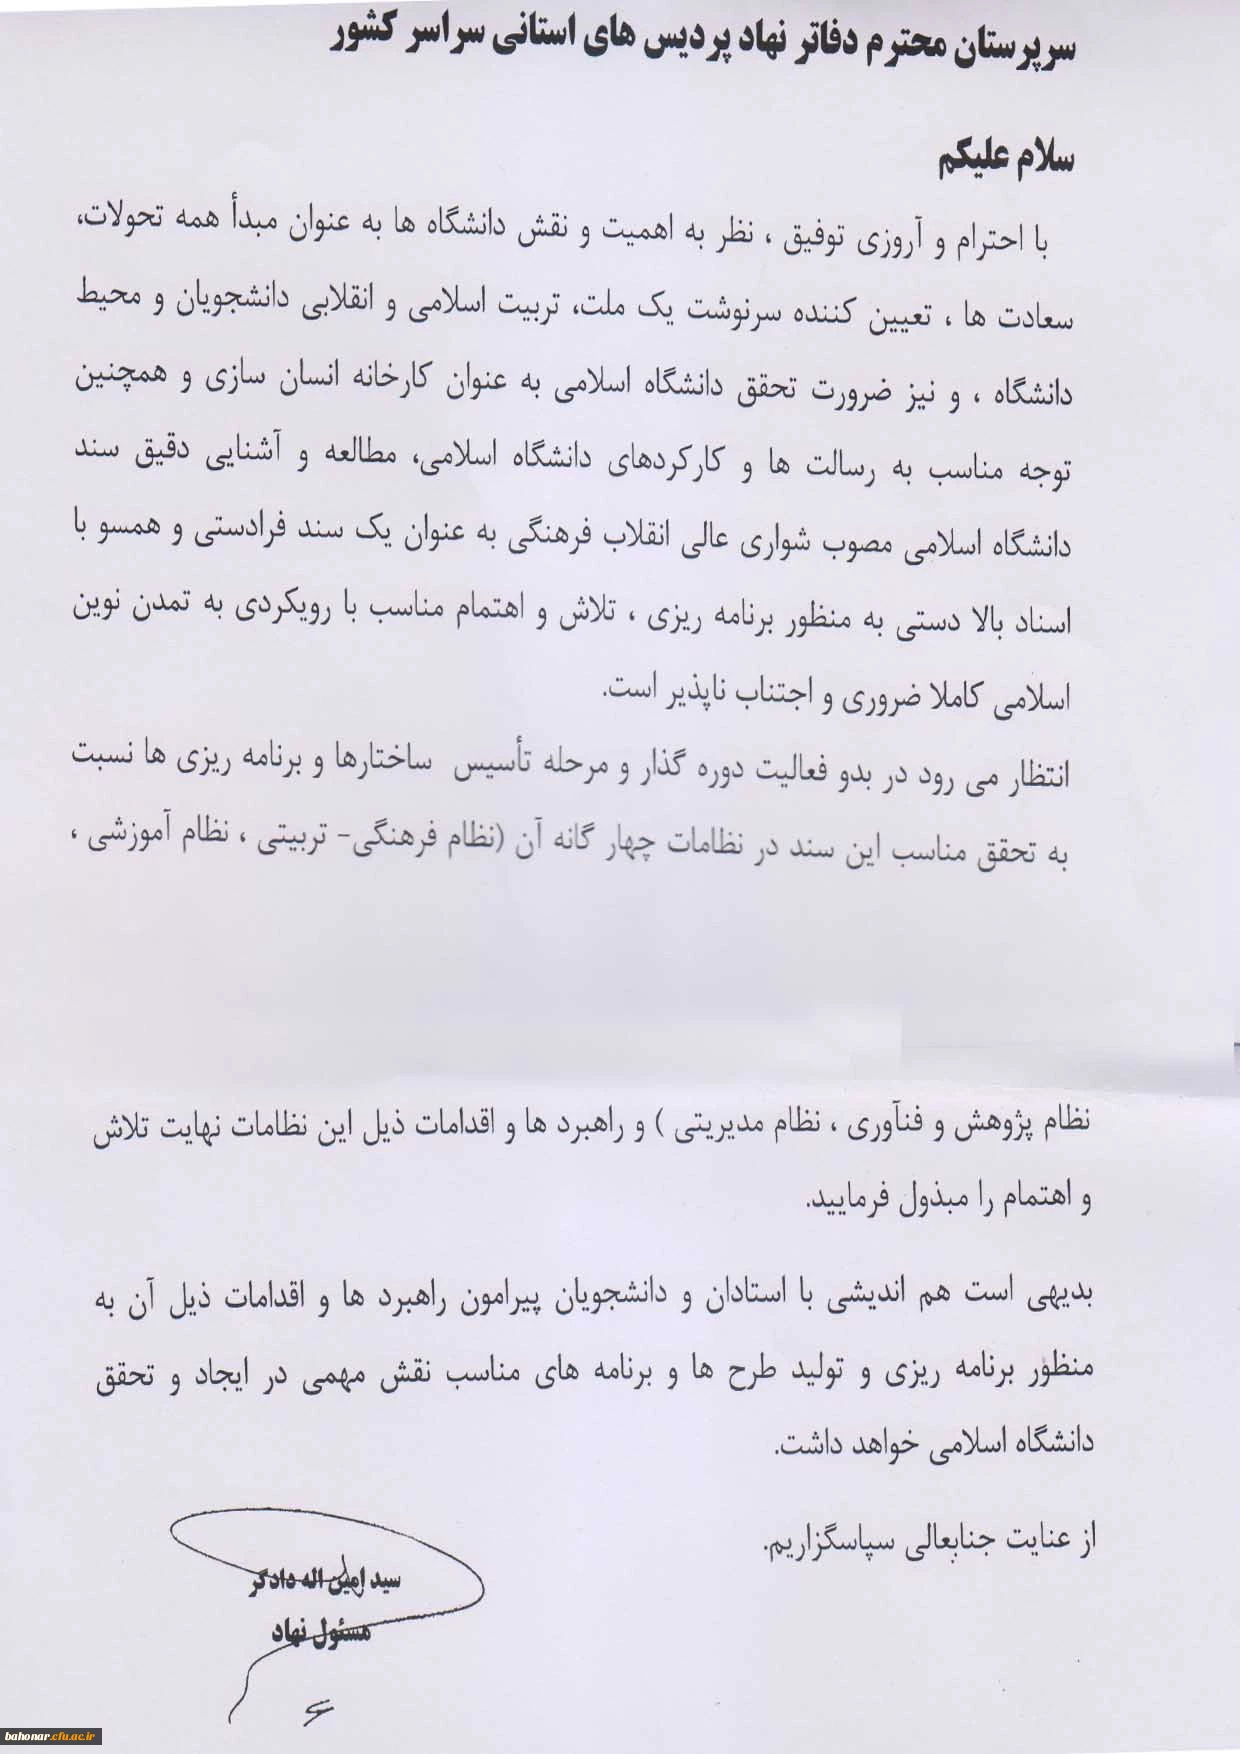 سرپرستان محترم دفاتر نهاد پردیس های استانی سراسر کشور
سلام علیکم
با احترام و آروزی توفیق ، نظر به اهمیت و نقش دانشگاه ها به عنوان مبدأ همه تحولات،
سعادت ها ، تعیین کننده سرنوشت یک ملت، تربیت اسلامی و انقلابی دانشجویان و محیط
دانشگاه ، و نیز ضرورت تحقق دانشگاه اسلامی به عنوان کارخانه انسان سازی و همچنین
توجه مناسب به رسالت ها و کارکردهای دانشگاه اسلامی، مطالعه و آشنایی دقیق سند
دانشگاه اسلامی مصوب شواری عالی انقلاب فرهنگی به عنوان یک سند فرادستی و همسو با
اسناد بالا دستی به منظور برنامه ریزی ، تلاش و اهتمام مناسب با رویکردی به تمدن نوین
اسلامی کاملا ضروری و اجتناب ناپذیر است.
انتظار می رود در بدو فعالیت دوره گذار و مرحله تأسیس ساختارها و برنامه ریزی ها نسبت
به تحقق مناسب این سند در نظامات چهار گانه آن (نظام فرهنگی- تربیتی ، نظام آموزشی ،
نظام پژوهش و فنآوری ، نظام مدیریتی ) و راهبرد ها و اقدامات ذیل این نظامات نهایت تلاش
و اهتمام را مبذول فرمایید.
بدیهی است هم اندیشی با استادان و دانشجویان پیرامون راهبرد ها و اقدامات ذیل آن به
منظور برنامه ریزی و تولید طرح ها و برنامه های مناسب نقش مهمی در ایجاد و تحقق
دانشگاه اسلامی خواهد داشت.
از عنایت جنابعالی سپاسگزاریم.
سید امین اله دادگر
مسئول نهاد
bahonar.cfu.ac.ir